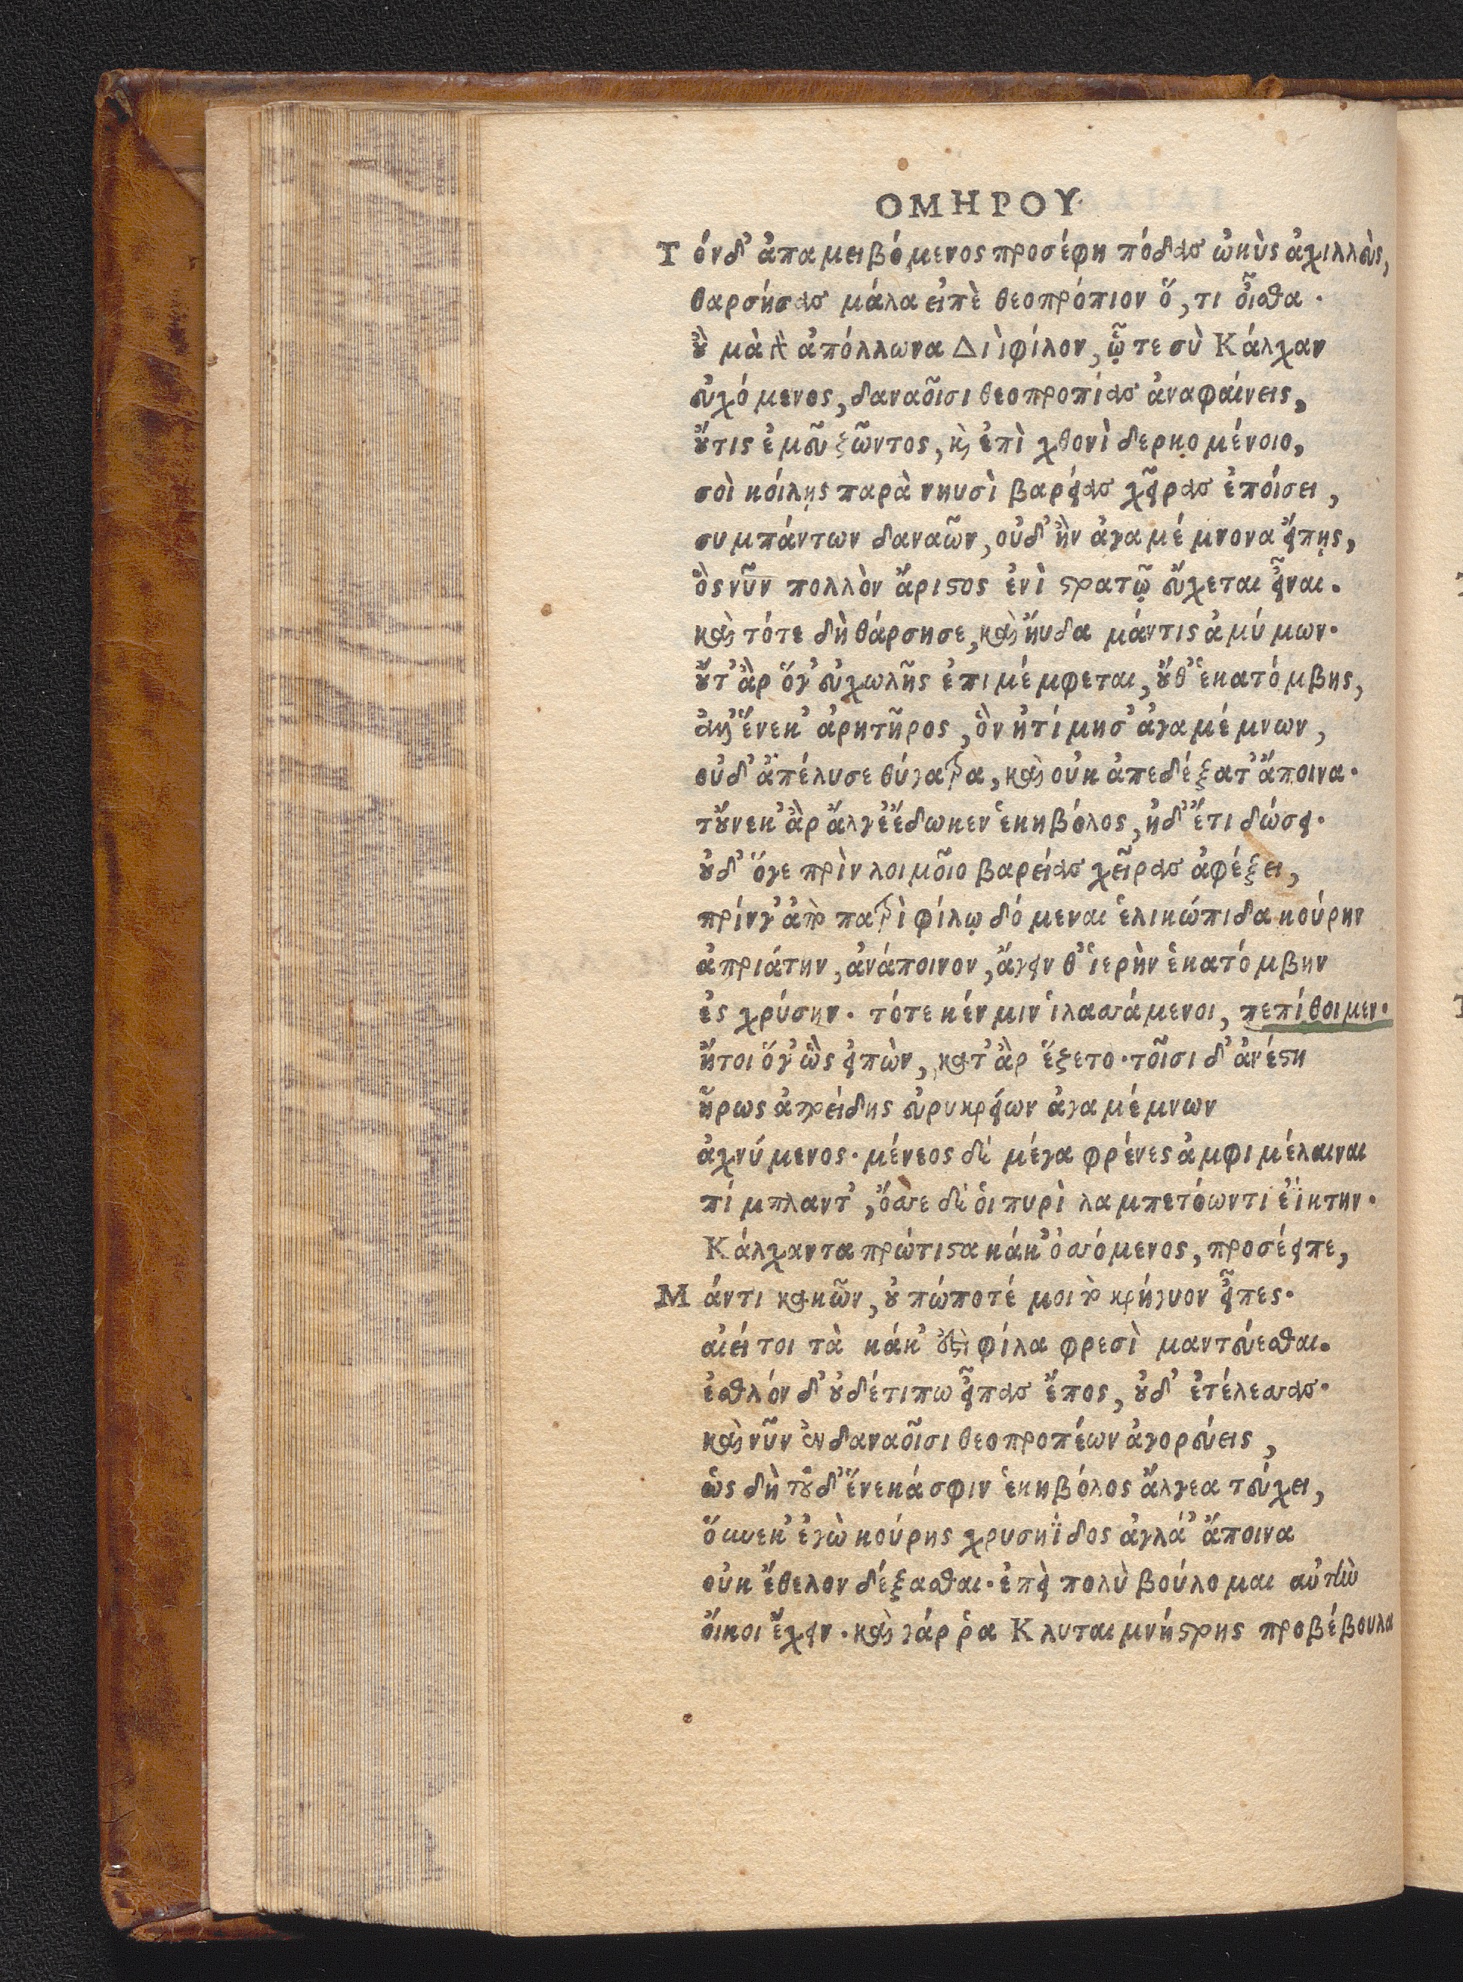 ΟΜΗΡΟΥ
Τόνδ' ἀπαμειβόμενος προσέφη πόδας ὠκὺς ἀχιλλεὺς,
θαρσήσας μάλα εἰπὲ θεοπρόπιον ὅ, τι οἶσθα.
οὐ μὰ γὰρ ἀπόλλωνα Διῒ φίλον, ᾧτε σὺ Κάλχαν
εὐχόμενος, δαναοῖσι θεοπροπίας ἀναφαίνεις,
οὔτις ἐμεῦ ζῶντος, καὶ ἐπὶ χθονὶ δερκομένοιο,
σοὶ κοίλῃς παρὰ νηυσὶ βαρείας χεῖρας ἐποίσει,
συμπάντων δαναῶν, οὐδ' ἢν ἀγαμέμνονα εἴπῃς,
ὃς νῦν πολλὸν ἄριστος ἐνὶ στρατῷ εὔχεται εἶναι.
καὶ τότε δὴ θάρσησε, καὶ ηὔδα μάντις ἀμύμων.
οὔτ' ἂρ ὅγ' εὐχωλῆς ἐπιμέμφεται, οὔθ' ἑκατόμβης,
ἀλλ' ἕνεκ' ἀρητῆρος, ὃν ἠτίμησ' ἀγαμέμνων,
οὐδ' ἀπέλυσε θύγατρα, καὶ οὐκ ἀπεδέξατ' ἄποινα.
τοὔνεκ' ἂρ ἄλγε' ἔδωκεν ἑκηβόλος, ἠδ' ἔτι δώσει.
οὐδ' ὅγε πρὶν λοιμοῖο βαρείας χεῖρας ἀφέξει,
πρίνγ' ἀπὸ πατρὶ φίλῳ δόμεναι ἑλικώπιδα κούρην
ἀπριάτην, ἀνάποινον, ἄγειν θ' ἱερὴν ἑκατόμβην
ἐς χρύσην. τότε κέν μιν ἱλασσάμενοι, πεπίθοιμεν.
ἤτοι ὅγ' ὣς εἰπὼν, κατ' ἂρ ἕζετο. τοῖσι δ' ἀνέστη
ἥρως ἀτρείδης εὐρυκρείων ἀγαμέμνων
ἀχνύμενος. μένεος δὲ μέγα φρένες ἀμφιμέλαιναι
πίμπλαντ', ὄσσε δὲ οἱ πυρὶ λαμπετόωντι ἐΐκτην.
Κάλχαντα πρώτιστα κάκ' ὀσσόμενος, προσέειπε,
Μάντι κακῶν, οὐ πώποτέ μοι τὸ κρήγυον εἶπες.
αἰεί τοι τὰ κάκ' ἐστὶ φίλα φρεσὶ μαντεύεσθαι.
ἐσθλὸν δ' οὐδέτιπω εἶπας ἔπος, οὐδ' ἐτέλεσσας.
καὶ νῦν ἐν δαναοῖσι θεοπροπέων ἀγορεύεις,
ὡς δὴ τοῦδ' ἕνεκά σφιν ἑκηβόλος ἄλγεα τεύχει,
οὕνεκ' ἐγὼ κούρης χρυσηΐδος ἀγλά' ἄποινα
οὐκ ἔθελον δέξασθαι. ἐπεὶ πολὺ βούλομαι αὐτὴν
οἴκοι ἔχειν. καὶ γάρ ῥα Κλυταιμνήστρης προβέβουλα